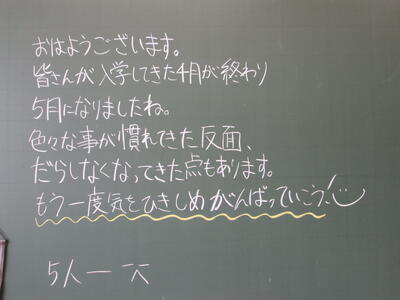 おはようございます。
皆さんが入学してきた4月が終わり
5月になりましたね。
色々な事が慣れてきた反面、
だらしなくなってきた点もあります。
もう一度気をひきしめがんばっていこう!